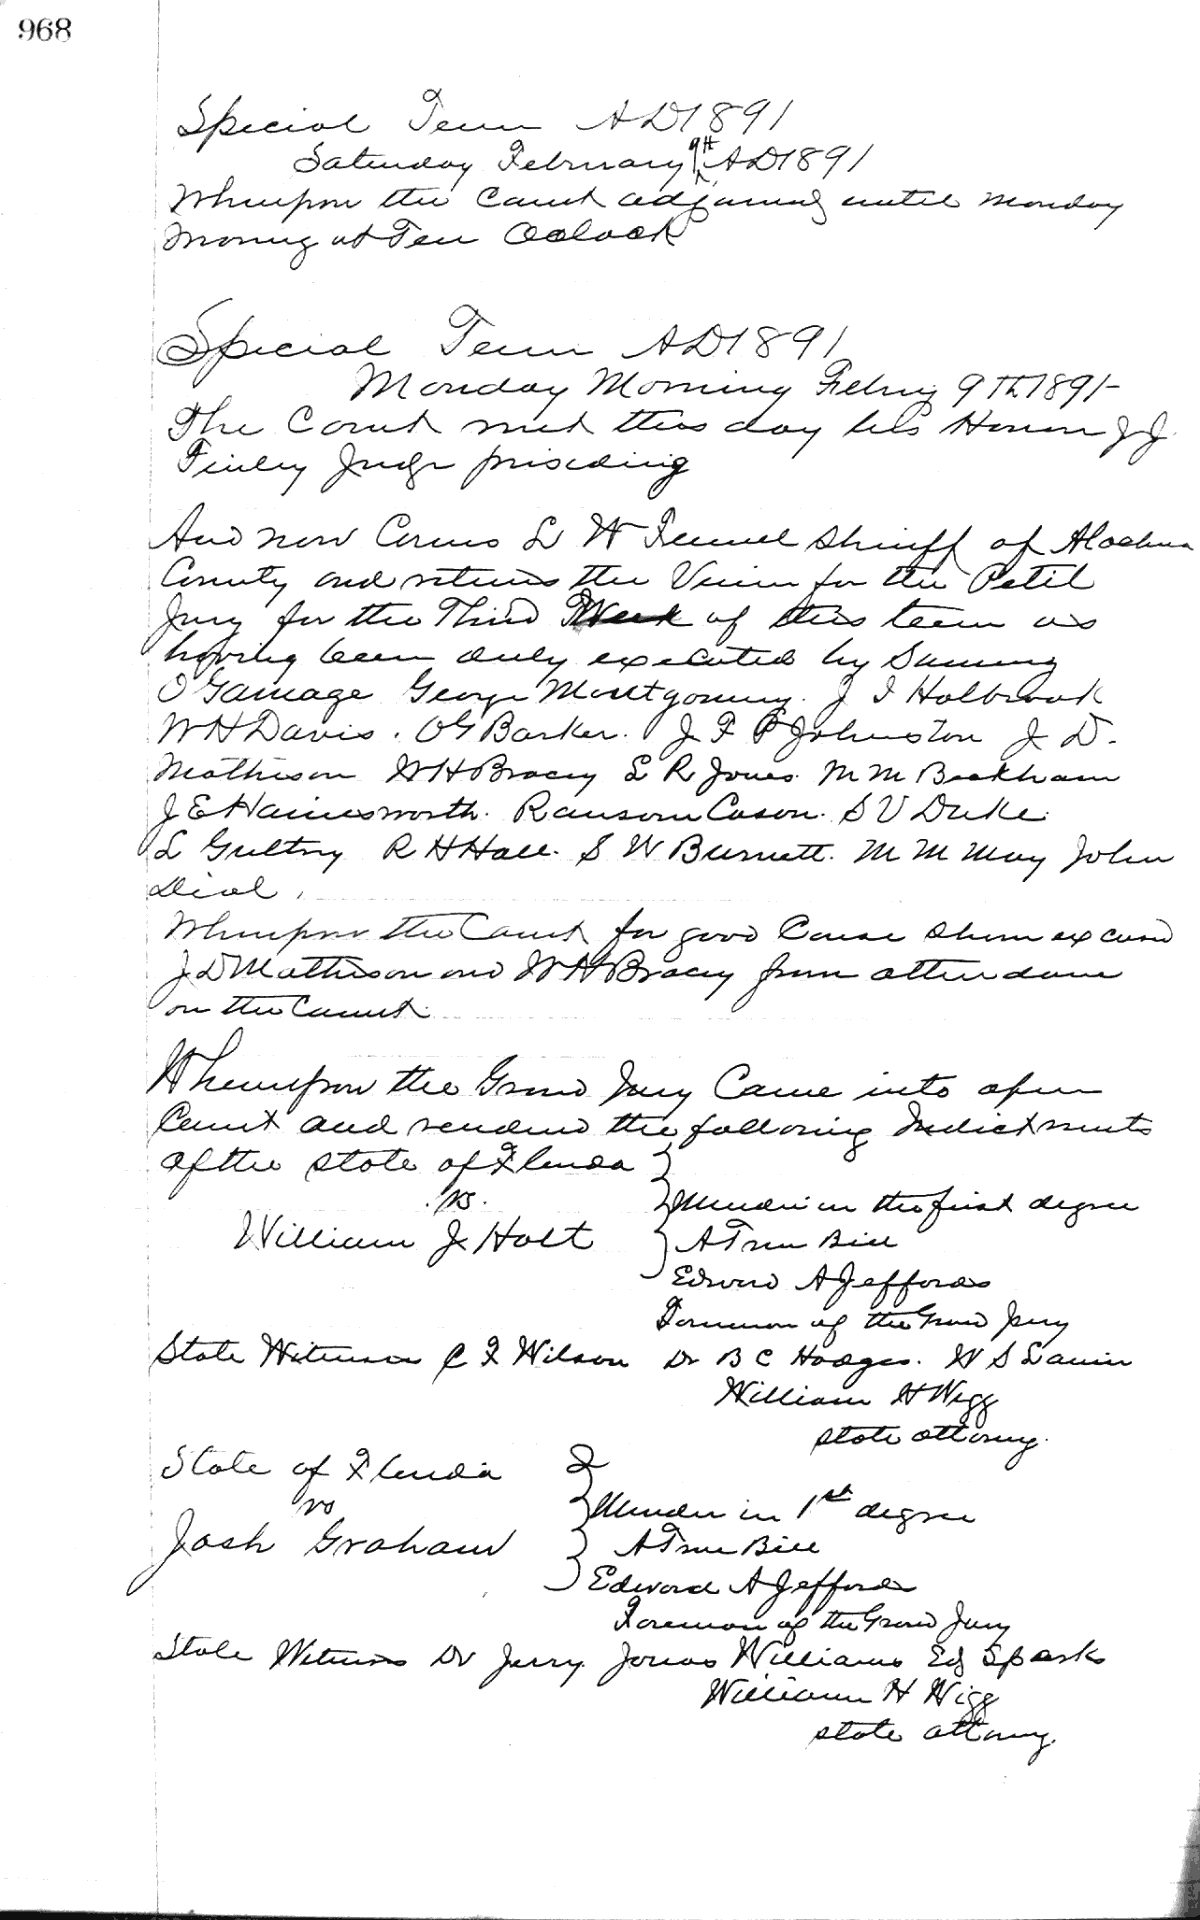 968
Special Term AD 1891
Saturday February 9th AD 1891
Whereupon the Court adjourned until Monday
Morning at Ten Oclock
Special Term AD 1891
Monday Morning Febry 9TH 1891-
The Court met this day his Honor J J
Finley Judge presiding
And now Comes L W Fennel Sheriff of Alachua
County and returns the Venire for the Petit
Jury for the Third Week of this term as
having been duly executed by Suming
O Gamage George Montgomery. J I Holbrook
W H Davis. O G Barker. J F P Johnston J D.
Mathison W H Bracey L R Jones. M M Beckham
J E Hainesworth. Ransom Cason. S V Duke.
L Gultny R H Hall. S W Burnett. M M May John
Dial.
Whereupon the Court for good Cause shown excused
J D Mathison and W H Bracey from attendance
on the Court.
Whereupon the Grand Jury Came into open
Court and rendered the following Indictments
of the State of Florida
vs.
Murder in the first degree
William J Holt
A True Bill
Edward A Jeffords
Foreman of the Grand Jury
State Witnesses C F Wilson Dr B C Hodges. W S
William H Wigg
state attorney.
State of Florida
vs
Murder in 1st degree
Josh Graham
A True Bill
Edward A Jeffords
Foreman of the Grand Jury
State Witness Dr Jerry. Jonas Williams Ed Sparks
William H Wigg
state attorny.